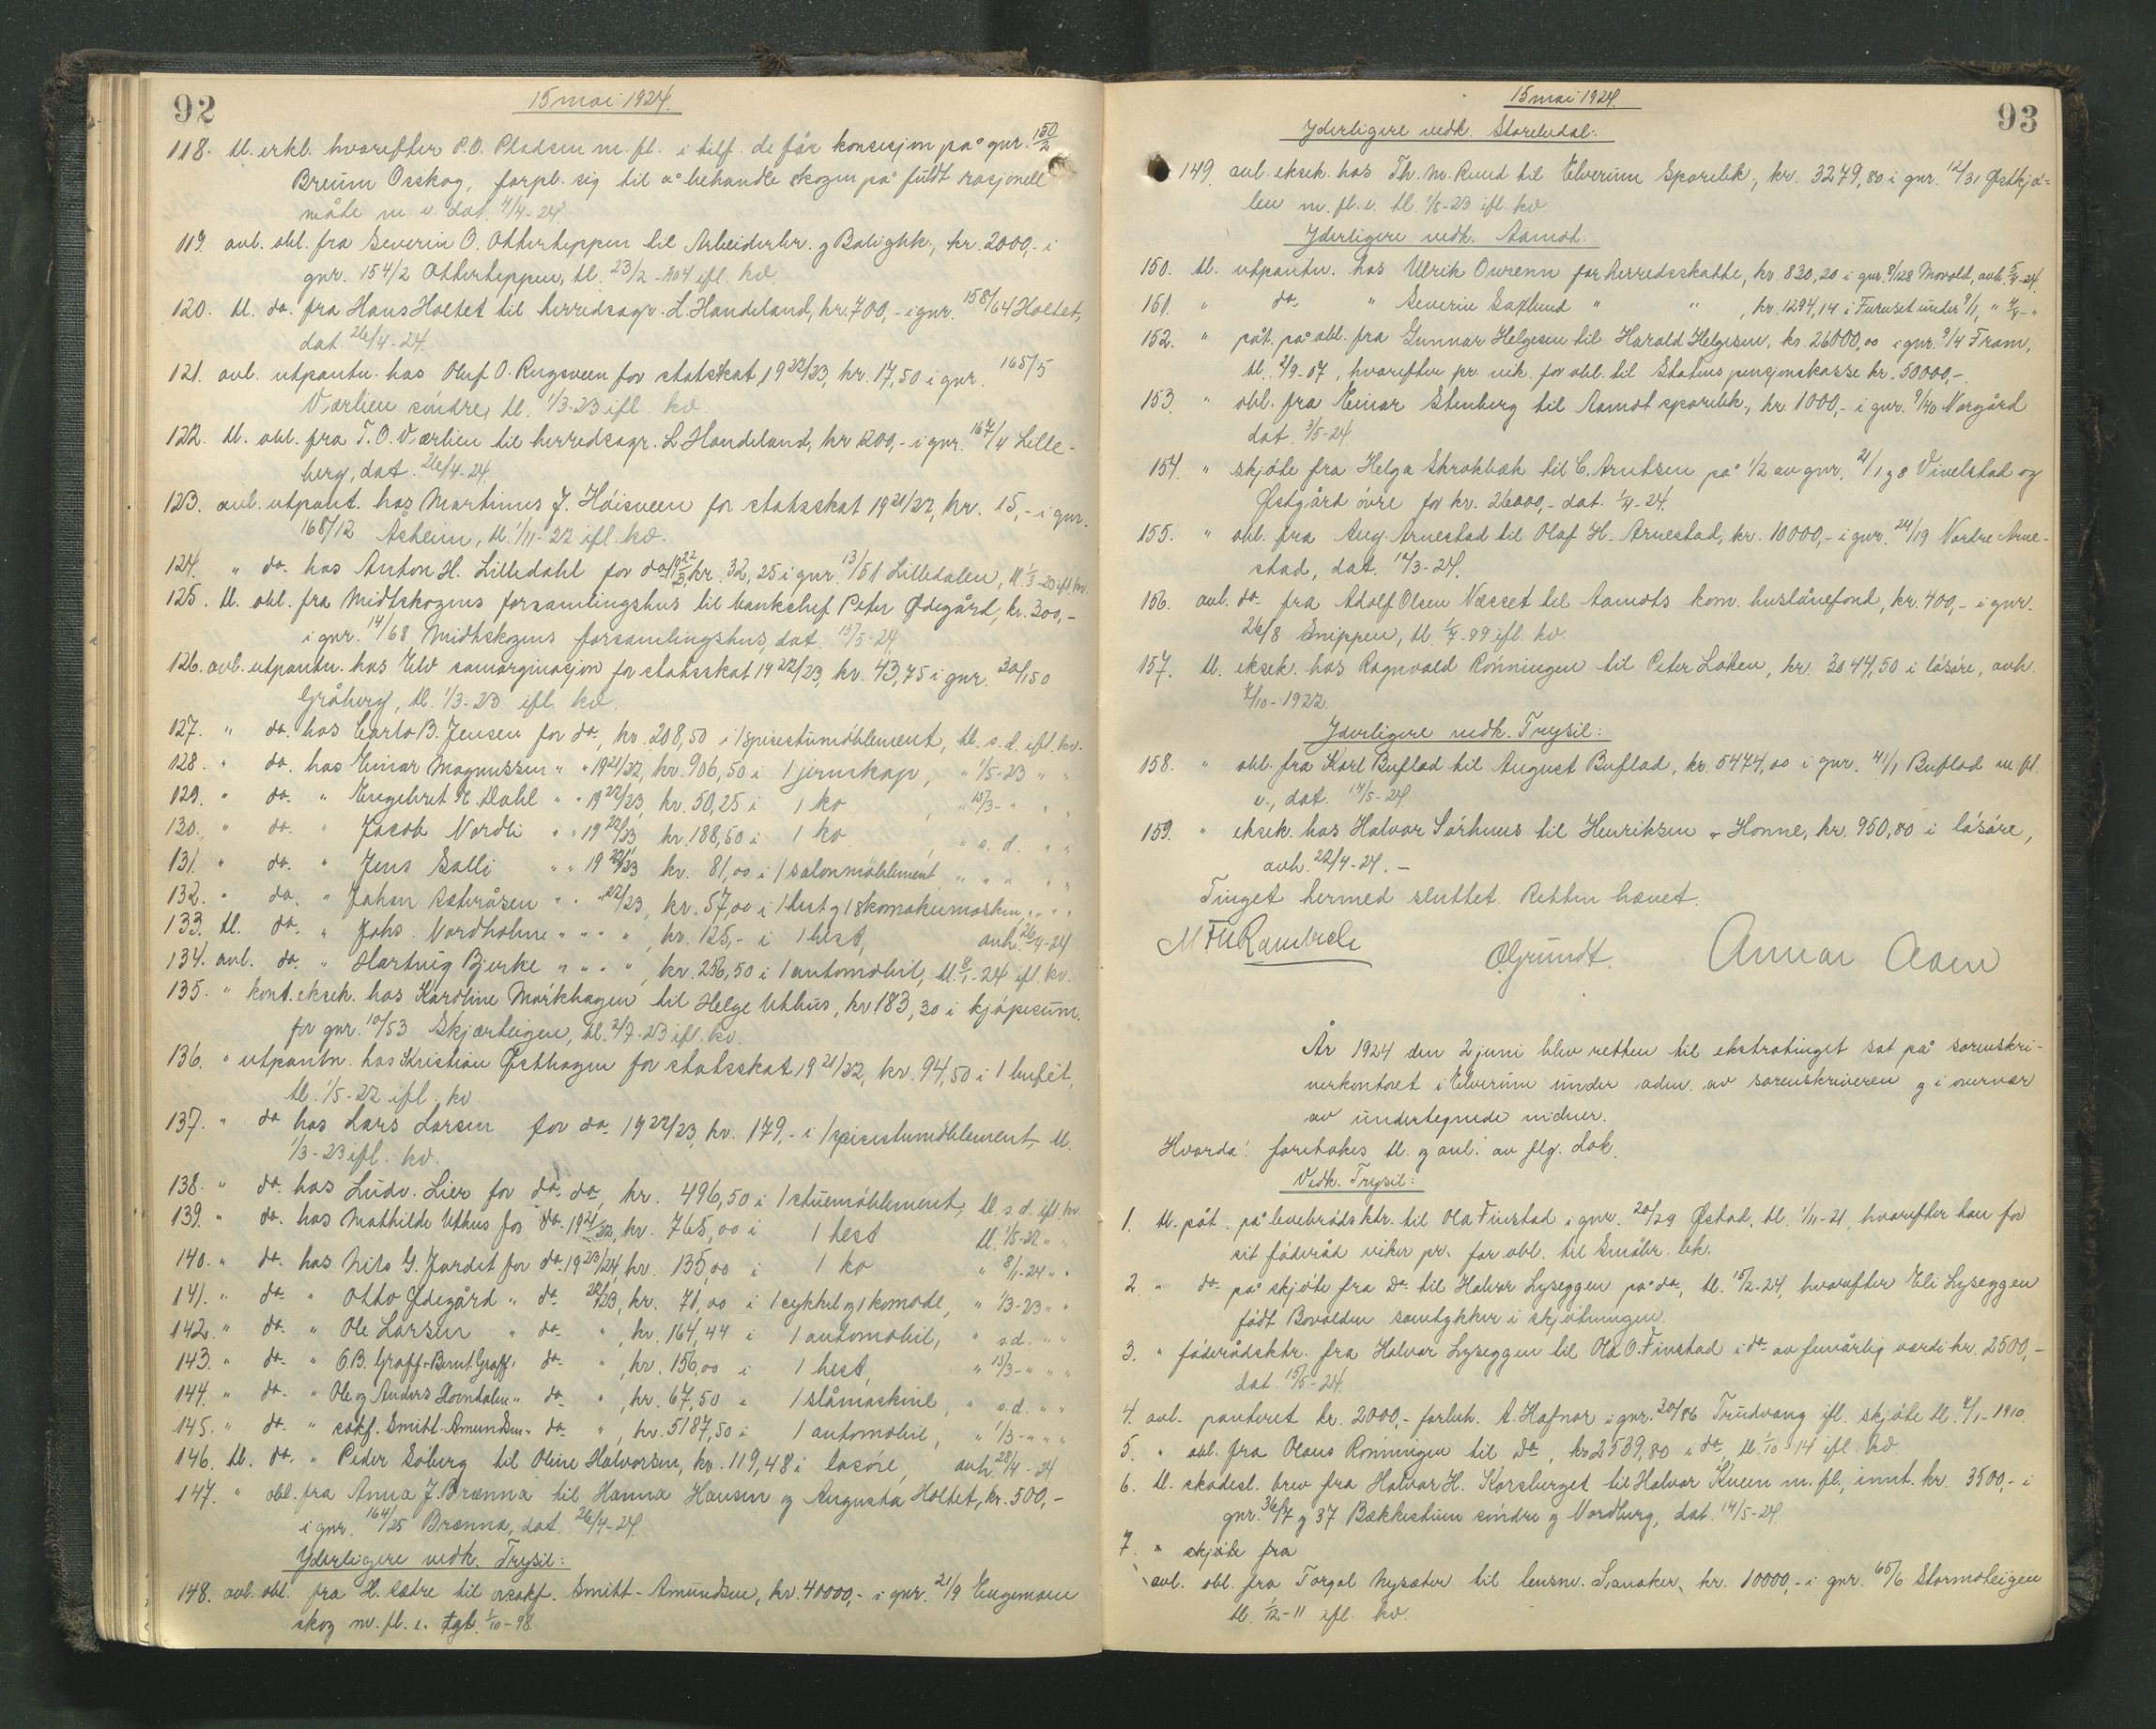 92
15 mai 1924.
118. tl. erkl. hvorefter P.O. Pladsen m. fl. i tilf. de får konsesjon på gnr. 150/2
Breum Osskog, forpl. sig til å behandle skogen på fuldt rasjonell
måte m. v. dat. 4/4-24.
119. avl. obl. fra Severin O. Otterteppen til Arbeiderbr. g Boligbk., kr. 2000,- i
gnr. 154/2 Otterteppen, tl. 23/2-1904 ifl. kv.
120. tl. do. fra Hans Holtet til herredsagr. L. Handeland, kr. 700,- i gnr. 158/64 Holtet,
dat. 26/4-24.
121. avl. utpantn. hos Oluf O. Rugsveen for statsskat 1922/23, kr. 17,50 i gnr. 165/5
Værlien søndre, tl. 1/3-23 ifl. kv.
122. tl. obl. fra T.O. Værlien til herredsagr. L. Handeland, kr. 1200,- i gnr. 167/4 Lille-
berg, dat. 26/4-24.
123. avl. utpant. hos Martinus J. Høisveen for statsskat 1921/22, kr. 15,- i gnr.
168/12 Åsheim, tl. 1/11-22 ifl. kv.
124. " do. hos Anton H. Lilledahl for do. 1922/23, kr. 32,25 i gnr. 13/51 Lilledalen, tl. 1/3-23 ifl. kv.
125. tl. obl. fra Midtskogens forsamlingshus til banksjef Peter Ødegård, kr. 300,-
i gnr. 14/68 Midtskogens forsamlingshus, dat. 15/5-24.
126. avl. utpantn. hos Elv samorginasjon for statsskat 1922/23, kr. 43,75 i gnr. 20/150
Gråberg, tl. 1/3-23 ifl. kv.
127. " do. hos Carlo B. Jensen for do, kr. 208,50 i 1 spisestumøblement, tl. s. d. ifl. kv.
128. " do. hos Einar Magnussen " " 1921/22, kr. 906,50 i 1 jernskap, " 1/5-23 " "
129. " do. " Engebret E. Dahl " " 1922/23, kr. 50,25 i 1 ko, " 15/3- " "
130. " do. " Jacob Nordli " " 1922/23, kr. 188,50 i 1 ko, " s. d. " "
131. " do. " Jens Galli " " 1922/23 kr. 81,00 i 1 salonmøblement, " " " " "
132. " do. " Johan Asteråsen " " " 22/23, kr. 57,00 i 1 hest g 1 skomakermaskin, " " " "
133. tl. do. " Johs. Nordholme " " " ", kr. 125,- i 1 hest, avh. 26/4-24
134. avl. do. " Hartvig Bjerke " " " ", kr. 256,50 i 1 automobil, tl. 8/1-24 ifl. kv.
135. " kont. eksek. hos Karoline Mørkhagen til Helge Uthus, kr 183,30 i kjøpesum.
for gnr. 10/53 Skjærteigen, tl. 2/7-23 ifl. kv.
136. " utpantn. hos Kristian Østhagen for statsskat 1921/22, kr. 94,50 i 1 bufet,
tl. 1/5-22 ifl. kv.
137. " do hos Lars Larsen for do. 1922/23, kr. 179,- i 1 spisestumøblement, tl.
1/3-23 ifl. kv.
138. " do. hos Ludv. Lier for do. do, kr. 496,50 i 1 stuemøblement, tl. s. d. ifl. kv.
139. " do. hos Mathilde Uthus for do. 1921/22, kr. 765,00 i 1 hest tl. 1/5-22 " "
140. " do. hos Nils G. Jordet for do. 1923/24, kr. 135,00 i 1 ko " 8/1-24 " "
141. " do. " Otto Ødegård " do. 22/23, kr. 71,00 i 1 cykkel g 1 komode, " 1/3-23 " "
142. " do. " Ole Larsen " do. ", kr. 164,44 i 1 automobil, " s.d. " "
143. " do. " O.B. Graff-Bernt. Graff " do. ", kr. 156,00 i 1 hest, " 15/3- " " "
144. " do. " Ole og Anders Horndalen " do. ", kr. 67,50 i 1 slåmaskine, " s.d. " "
145. " do. " sakf. Smitt-Amundsen " do. ", kr. 5187,50 i 1 automobil, " 1/3- " " "
146. tl. do. " Peder Søberg til Oline Halvorsen, kr. 119,48 i løsøre, avh. 28/4-24
147. " obl. fra Anna J. Brænna til Hanna Hansen og Augusta Holtet, kr. 500,-
i gnr. 164/25 Brænna, dat. 26/4-24.
Yderligere vedk. Trysil:
148. avl. obl. fra H. Sætre til o.r.sakf. Smitt-Amundsen, kr. 40000,- i gnr. 21/9 Engemoen
skog m. fl. e. tgl. 1/10-98
93
15 mai 1924.
Yderligere vedk. Storelvdal:
149. avl. eksek. hos Th. M. Ruud til Elverum Sparebk., kr. 3279,80 i gnr. 12/31 Østkjø-
len m. fl. e. tl. 1/8-23 ifl. kv.
Yderligere vedk. Aamot.
150. tl. utpantn. hos Ulrik Owrenn for herredsskatte, kr. 830,20 i gnr. 9/128 Movold, avh. 5/4-24.
151. " do. " Severin Saxlund " ", kr. 1294,14 i Furuset under 9/1, " 4/4- "
152. " påt. på obl. fra Gunnar Helgesen til Harald Helgesen, kr. 26000,00 i gnr. 9/4 Fram,
tl. 2/9-07, hvorefter pr. vik. for obl. til Statens pensjonskasse kr. 50000,-.
153. " obl. fra Einar Stenberg til Aamot sparebk., kr. 1000,- i gnr. 9/40 Norgård
dat. 3/5-24.
154. " skjøte fra Helga Skrokbæk til C. Arntsen på 1/2 av gnr. 21/1 g 8 Vivelstad og
Østgård øvre for kr. 26000,- dat. 1/4-24.
155. " obl. fra Aug. Arnestad til Olaf H. Arnestad, kr. 10000,- i gnr. 24/19 Nordre Arne-
stad, dat. 14/3-24.
156. avl. do. fra Adolf Olsen Næsset til Aamots kom. huslånefond, kr. 400,- i gnr.
26/8 Snippen, tl. 1/7-99 ifl. kv.
157. tl. eksek. hos Ragnvald Rønningen til Peter Løken, kr. 3044,50 i løsøre, avh.
4/10-1922.
Yderligere vedk. Trysil:
158. " obl. fra Karl Buflod til August Buflod, kr. 5474,00 i gnr. 41/1 Buflod m. fl.
e., dat. 14/5-24.
159. " eksek. hos Halvor Sørhuus til Henriksen & Honne, kr. 950,80 i løsøre,
avh. 22/4-24.-
Tinget hermed sluttet. Retten hævet.
Grundt. Annar Aaen
År 1924 den 2 juni blev retten til ekstratinget sat på sorenskri-
verkontoret i Elverum under adm. av sorenskriveren g i overvær
av undertegnede vidner.
Hvorda: foretakes tl. g avl. av flg. dok.
Vedk. Trysil:
1. tl. påt. på levebrødsktr. til Ola Finstad i gnr. 20/29 Østad, tl. 1/11-21, hvorefter han for
sit føderåd viker pr. for obl. til Småbr. bk.
2. " do. på skjøte fra do. til Halvor Lyseggen på do, tl. 15/2-24, hvorefter Eli Lyseggen
født Bovolden samtykker i skjøtningen.
3. " føderådsktr. fra Halvor Lyseggen til Ola O. Finstad i do. av femårlig værdi kr. 2500,-
dat. 15/5-24.
4. avl. panteret kr. 2000,- forbeh. A. Hafnor i gnr. 30/86 Trudvang ifl. skjøte tl. 4/1-1910.
5. " obl. fra Olaus Rønningen til do, kr 2539,80 i do, tl. 1/10-14 ifl. kv.
6. tl. skadesl. brev fra Halvor H. Korsberget til Halvor Kveen m. fl., innt. kr. 3500,- i
gnr. 36/7 g 37 Bækkestuen søndre g Nordberg, dat. 14/5-24.
7. " skjøte fra
avl. obl. fra Torgal Nysæter til lensm. Lanaker, kr. 10000,- i gnr. 65/6 Stormoteigen
tl. 1/12-11 ifl. kv.